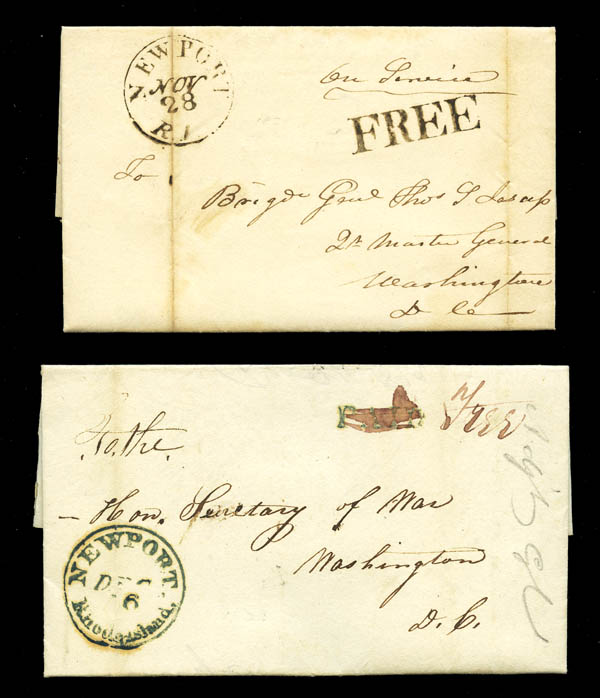 NEWPORT
NOV
28
R.I.
On Service
FREE
To
Brigde Genl Thos S Jesup
Qr Master General
Washington
D Co
PAID
Free
To the
Hon. Secretary of War
NEWPORT.
DEC
6
Rhode Island.
Washington
D.C.